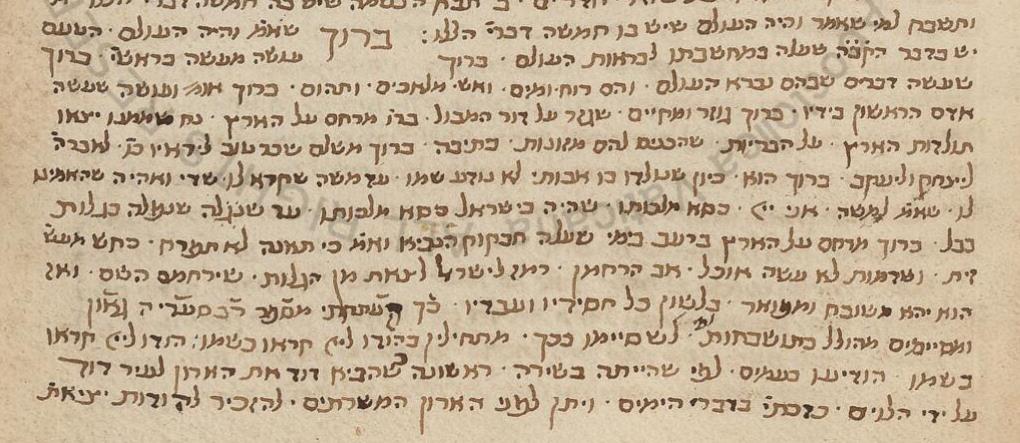 ותשבח למי שאמר והיה העולם שיש בו חמשה דברי׳ הללו: ברוך שאמ׳ והיה העולם · העולם
יש בדבר הקב״ה שעלה במחשבתו לבראות העולם · ברוך עושה מעשה בראשי׳ ברוך
שעשה דברים שבהם נברא העולם · והם רוח ומים · ואש · מלאכים · ותהום · ברוך אומ׳ ועושה שעשה
אדם הראשון בידיו · ברוך גוזר ומקיים · שגזר על דור המבול · בר׳ מרחם על הארץ · נח שממנו ייצאו
תולדות הארץ · על הבריות · שהכנים להם מזונות · בתיבה · ברוך משלם שכר טוב ליראיו כו׳ · לאברה׳
ליצחק וליעקב · ברוך הוא · כיון שנולדו בו אבות: לא נודע שמו · עד משה שקרא לו שדי ואהיה שהאמינו
לו · שאמ׳ למשה · אני ייי׳ · כסא מלכותו · שהיה בישראל כסא מלכותו · עד שנגלה שנגלה בגלות
בבל · ברוך מרחם על הארץ ברעב בימי שעלה חבקוק הנביא ואמ׳ כי תאנה לא תפרח · כחש מעש׳
זית · ושדמות לא עשה אוכל · אב הרחמן · רמז לישר׳ לצאת מן הגלות · שירחמם השם · ואז
הוא יהא משובח ומפואר · בלשון כל חסידיו ועבדיו · כך העתקתי מספר רב סעדיה גאון
ומסיימים מהולל בתושבחות · לשסיימו בכך · מתחילין בהודו לייי׳ קראו בשמו: הודו לייי׳ קראו
בשמו · הודיעו בעמים · לפי שהייתה בשירה · ראשונה כשהביא דוד את הארון לעיר דוד
על ידי הלוים · כדכתי׳ בדברי הימים · ויתן לפני הארון המשרתים · להזכיר להודות · יציאת